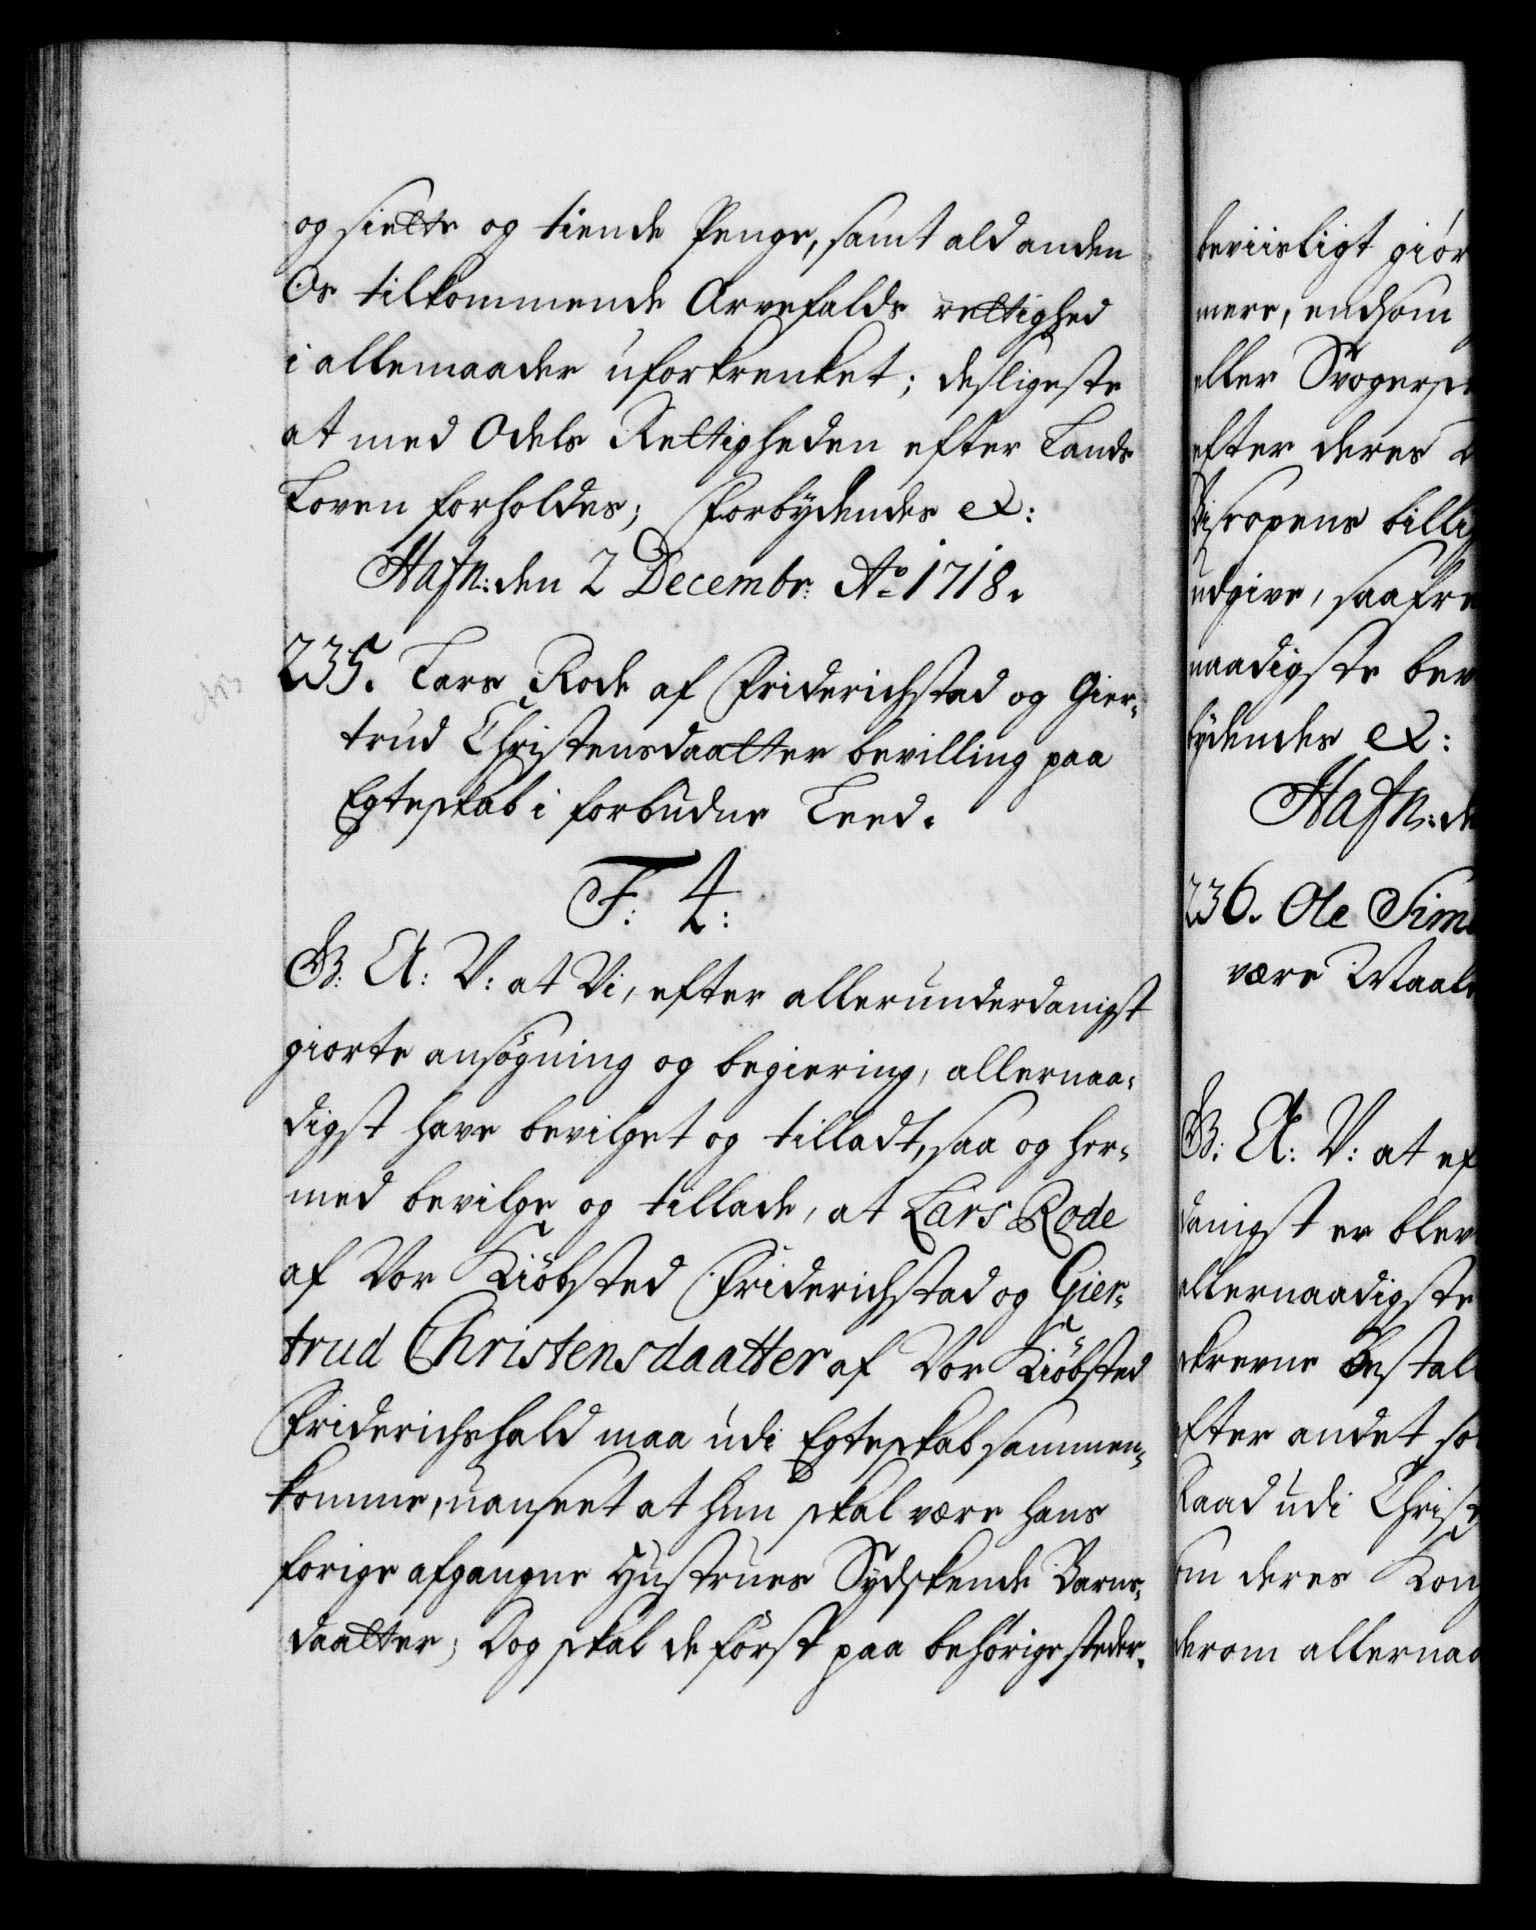 og siette og tiende Penge, samt ald anden
Os tilkommende Arvefalds rettighed
i allemaader uforkrenket; desligeste
at med Odels Rettigheden efter Lands
Loven forholdes; Forbydendes &:
Hafn: den 2 Decembr: Ao 1718.
235. Lars Rode af Friderichstad og Gier-
trud Christensdaatter bevilling paa
Egteskab i forbudne Leed.
F: 4:
G: A: V: at Vi, efter allerunderdanigst
giorte ansøgning og begiering, allernaa-
digst have bevilget og tilladt, saa og her-
med bevilge og tillade, at Lars Rode
af Vor Kiöbsted Friderichstad og Gier-
trud Christensdaatter af Vor Kiöbsted
Friderichshald maa udi Egteskab sammen-
komme, uanseet at hun skal være hans
forige afgangne Hustrues Sydskende Barns-
daatter; Dog skal de först paa behörige steder
beviisligt giör
mere, endsom
eller Svogersk
efter deres
Bisropens billig
udgive, saafre
naadigste bev
bydendes &:
Hafn: de
236. Ole Sim
være Maale
G: A: V: at ef
danigst er blev
allernaadigste
skrevne Bestal
efter andet so
Raad udi Christ
om deres Kong
derom allernaa